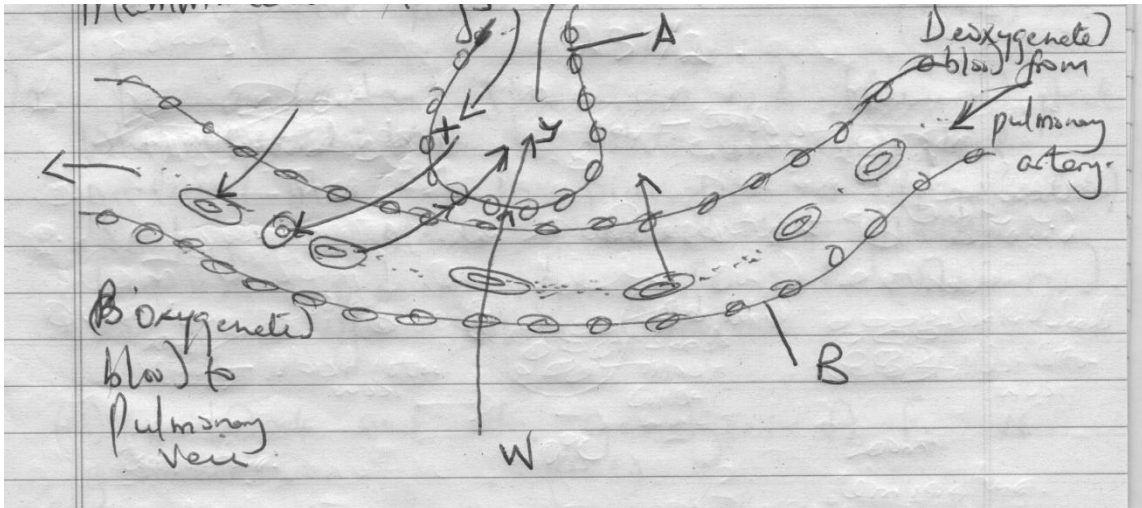 A
Deoxygenated
blood from
pulmonary
artery.
X
y
B
Oxygenated
blood to
Pulmonary
Vein
B
W